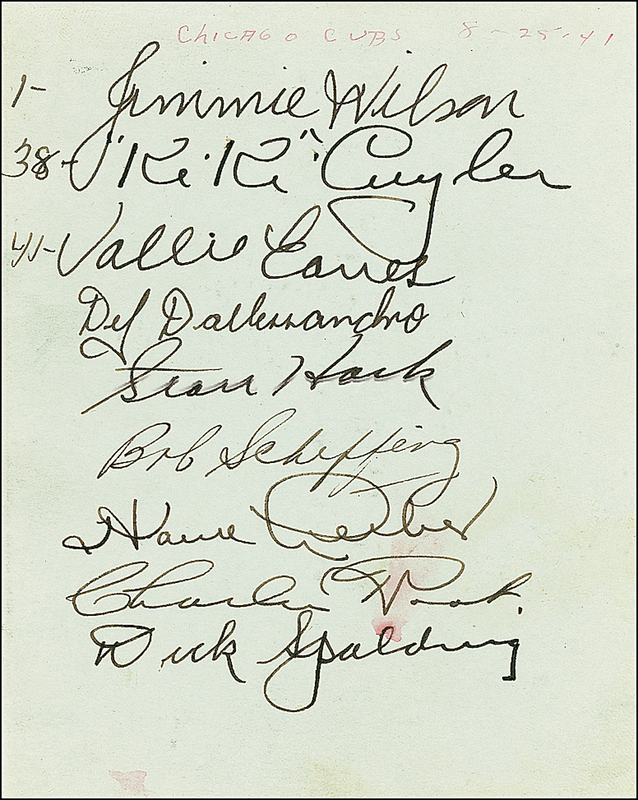 CHICAGO CUBS 8-25-41
1- Jimmie Wilson
38- "KiKi" Cuyler
41- Vallie Eaves
Dallessandro
Stan Hack
Bob Scheffing
Hank Leiber
Charlie Root
Dick Spalding